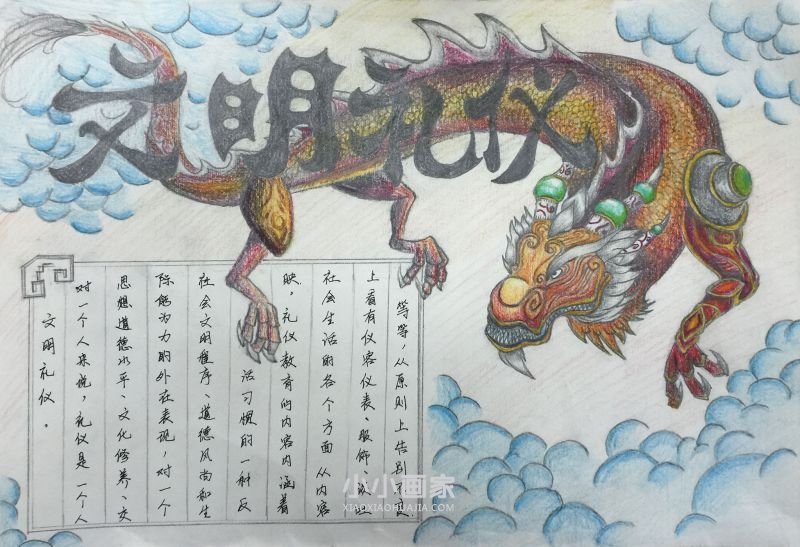 文明礼仪
文明礼仪。
对一个人来说,礼仪是一个人
思想道德水平、文化修养、交
际能为力的外在表现,对一个
社会文明程序、道德风尚和生
活习惯的一种反
映。礼仪教育的内容内涵着
社会生活的各个方面 从内容
上看有仪容仪表、服饰、
等等,从原则上告别
小小画家
XIAOXIAOHUAJIA.COM